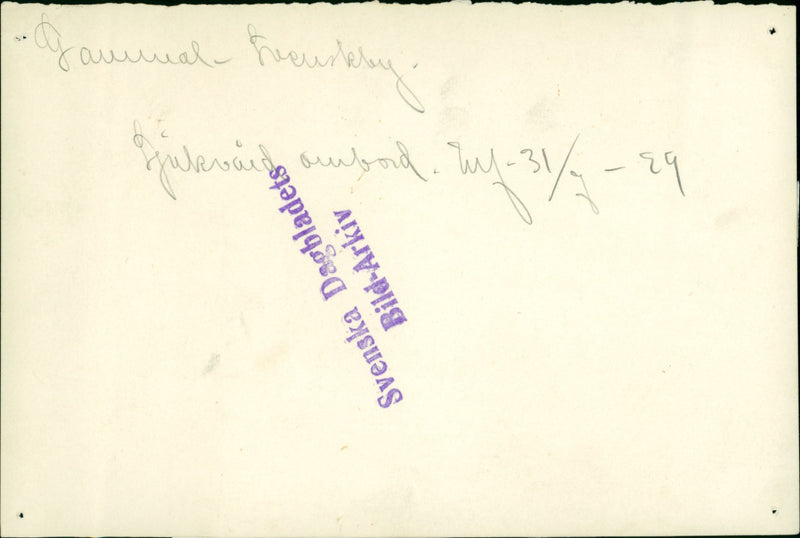 Gammal-Svenskby.
Sjukvård ombord. Inf-31/7-29
Svenska Dagbladets
Bild-Arkiv